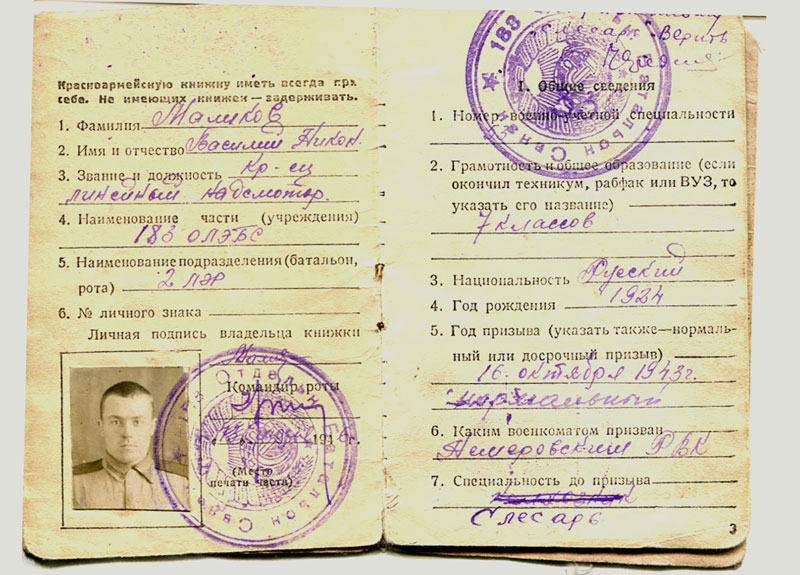 Красноармейскую книжку иметь всегда при
себе. Не имеющих книжек—задерживать.
1. Фамилия Маликов
2. Имя и отчество Василий Никон.
3. Звание и должность Кр-ец
линейный надсмотр.
4. Наименование части (учреждения)
183 ОЛЭБС
5. Наименование подразделения (батальон,
рота) 2 ЛЭР
6. № личного знака
Личная подпись владельца книжки
Командир роты
194 г.
(Место
печати части)
183 Отдельн Батальон Связи
183 Батальон Связи
Слесарь Верить
I. Общие сведения
1. Номер военно-учетной специальности
2. Грамотность и общее образование (если
окончил техникум, рабфак или ВУЗ, то
указать его название)
7 классов
3. Национальность Русский
4. Год рождения 1924
5. Год призыва (указать также—нормаль-
ный или досрочный призыв)
16 октября 1943г.
нормальный
6. Каким военкоматом призван
Немеровский РВК
7. Специальность до призыва
Слесарь
3